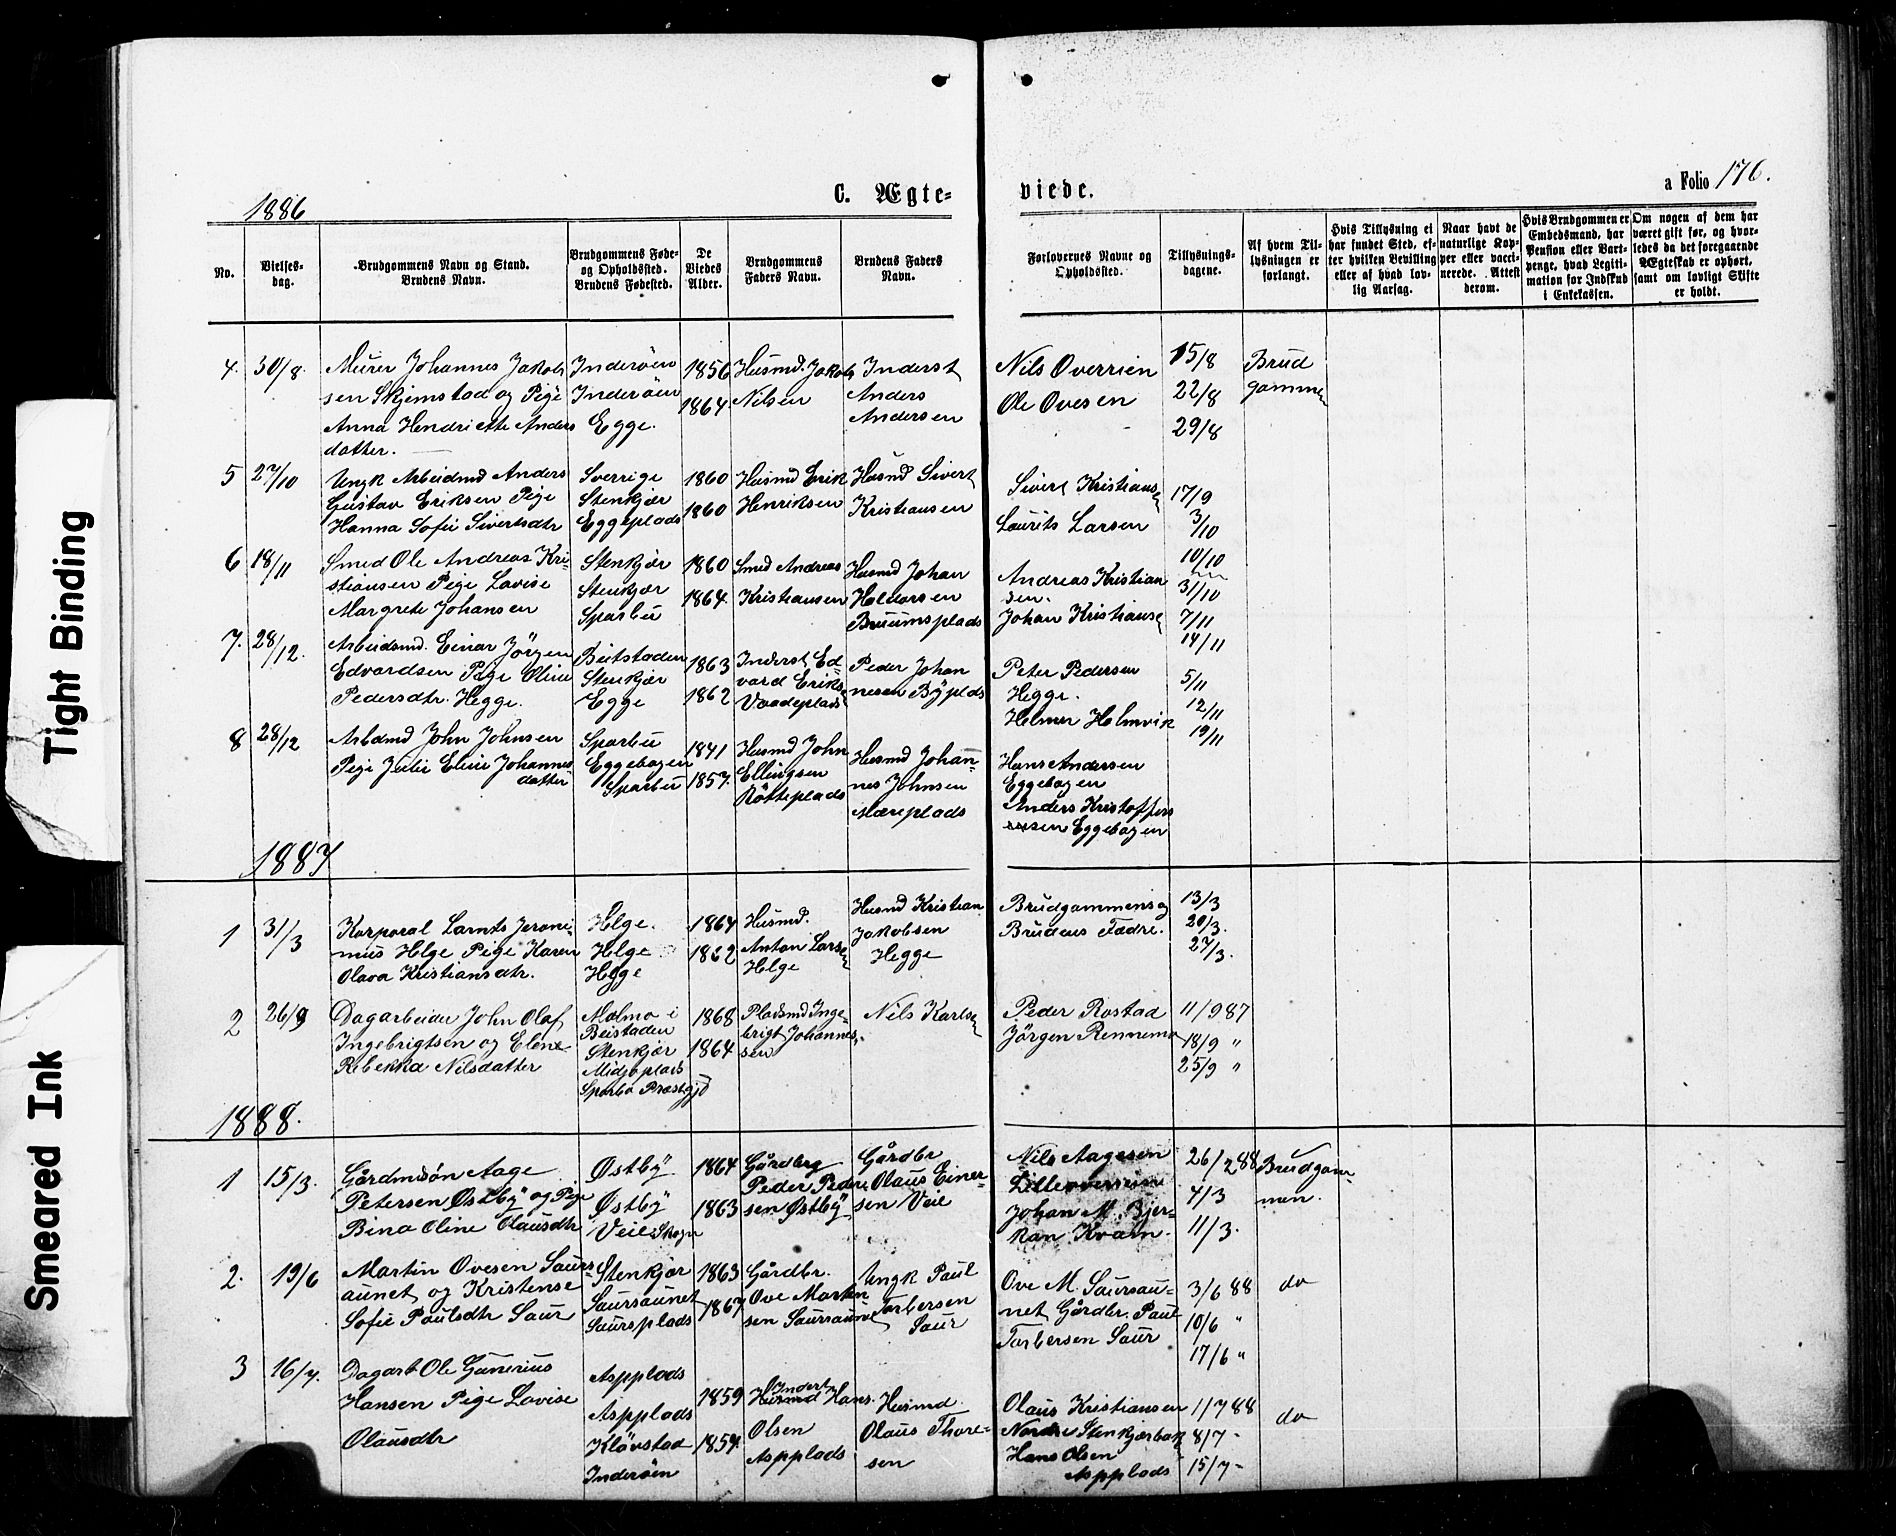 Tight Binding
Smeared Ink
1886
C. Ægte-
viede.
a Folio 176.
No.
Vielses-
dag.
Brudgommens Navn og Stand.
Brudens Navn.
Brudgommens Føde-
og Opholdssted.
Brudens Fødested.
De
Viedes
Alder.
Brudgommens
Faders Navn.
Brudens Faders
Navn.
Forlovernes Navne og
Opholdssted.
Tillysnings-
dagene.
Af hvem Til-
lysningen er
forlangt.
Hvis Tillysning ei
har fundet Sted, ef-
ter hvilken Bevilling
eller af hvad lov-
lig Aarsag.
Naar havt de
naturlige Kop-
per eller vacci-
nerede. Attest
derom.
Hvis Brudgommen er
Embedsmand, har
Pension eller Vart-
penge, hvad Legiti-
mation for Indskud
i Enkekassen.
Om nogen af dem har
været gift før, og hvor-
ledes da det foregaaende
Ægteskab er ophørt,
samt om lovligt Skifte
er holdt.
4. 30/8.
Murer Johannes Jakob
sen Skjemstad og Pige
Anna Hendriette Anders
datter.
Inderöen
Inderöen
Egge.
1856
1864
Husmd. Jakob
Nilsen
Inderst
Anders
Andersen
Nils Overrien
Ole Ovesen
15/8
22/8
29/8
Brud
gommen
5 27/10
Ungk Arbeidmd Anders
Gustav Eriksen Pige
Hanna Sofie Sivertsdtr
Sverrige
Stenkjær
Eggeplads
1860
1860
Husmd Erik
Henriksen
Husmd Sivert
Kristiansen
Sivert Kristiansen
Laurits Larsen
17/9
3/10
10/10
6 18/11
Smed Ole Andreas Kri-
stiansen Pige Lovise
Margrete Johansen
Stenkjær
Stenkjær
Sparbu
1860
1864.
Smed Andreas
Kristiansen
Husmd Johan
Holdarsen
Bruumsplads
Andreas Kristian
sen.
Johan Kristiansen
31/10
7/11
14/11
7. 28/12.
Arbeidsmd. Einar Jörgen
Edvardsen Pige Oline
Pedersdtr. Hegge.
Beitstaden
Stenkjær
Egge
1863
1862
Inderst Ed-
vard Eriks
Vaadeplads
Peder Johan
nesen Byplds
Peter Pedersen
Hegge.
Helmer Holmvik
5/11
12/11
19/11
8 28/12
Arbdmd John Johnsen
Pige Julie Eline Johannes
datter
Sparbu
Eggebogen
Sparbu
1841
1857.
Husmd John
Ellingsen
Røtteplads
Husmd Johan-
nes Johnsen
Mæreplads
Hans Andersen
Eggebogen
Anders Kristoffers
sen Eggebogen
1887
1 31/3
Korporal Larnts Jeroni-
mus Helge Pige Karen
Olava Kristiansdtr.
Helge.
Helge
Helge
1864
1862
Husmd.
Anton Larsen
Helge
Husmd Kristian
Jakobsen
Hegge
Brudgommens og
Brudens Fædre.
13/3
20/3.
27/3.
2 26/9
Dagarbeider John Olaf
Ingebrigtsen og Elene
Rebekka Nilsdatter
Malmo i
Beistaden
Stenkjær
Midjoplads
Sparbo Præstgjd
1868
1864
Pladsmd Inge-
brigt Johannes-
sen
Nils Karlsen
Peder Rostad
Jörgen Rennemo
11/9 87
18/9 "
25/9 "
1888.
1 15/3.
Gårdmdsön Aage
Petersen Østby og Pige
Bina Oline Olausdtr
Østby
Østby
Veie Skogn
1864
1863
Gårdbrg
Peder Peder
sen Østby
Gårdbr
Olaus Einer-
sen Veie
Nils Aagesen
Lilleoverrein
Johan M. Bjer-
kan Kvam.
26/2 88
4/3
11/3.
Brudgom-
men.
2. 19/6
Martin Ovesen Saurs-
aunet og Kristense
Sofie Paulsdtr Saur
Stenkjær
Saursaunet
Saursplads
1863
1867
Gårdbr.
Ove Morten
sen Saursaunet
Ungk Paul
Torbersen
Saur
Ove M. Saursau-
net Gårdbr. Paul
Torbersen Saur
3/6 88
10/6 "
17/6 "
do
3 16/7.
Dagarb Ole Gunerius
Hansen Pige Lovise
Olausdtr
Aspplads
Aspplads
Klövstad
Inderöen
1859
1854.
Inderst
Husmd Hans
Olsen
Aspplads
Husmd.
Olaus Thore-
sen
Olaus Kristiansen
Nordre Stenkjærbak
Hans Olsen
Aspplads
1/7 88
8/7 -
15/7 -
do